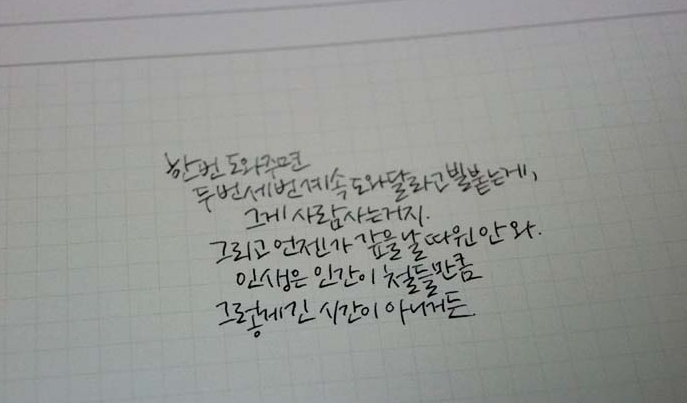 한번 도와주면
두번 세번 계속 도와달라고 빌붙는게,
그게 사람 사는거지.
그리고 언젠가 갚을 날 따윈 안 와.
인생은 인간이 철들만큼
그렇게 긴 시간이 아니거든.